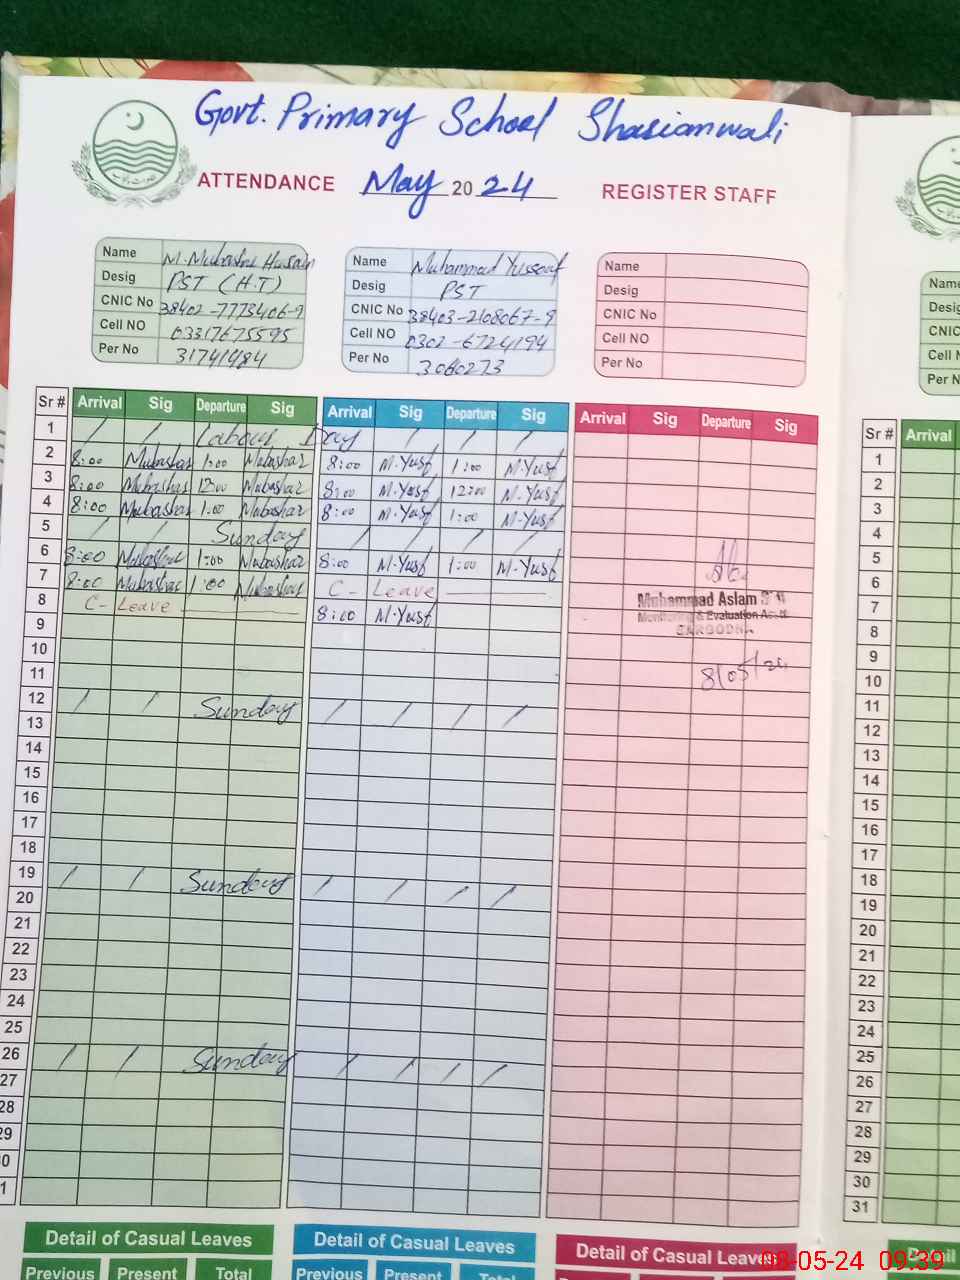 Govt. Primary School Shasianwali
ATTENDANCE May 2024 REGISTER STAFF
Name M. Mubashar Husain
Desig PST (H.T)
CNIC No 38402-7773406-9
Cell NO 03317675595
Per No 31741484
Name Muhammad Yussouf
Desig PST
CNIC No 38403-2108067-9
Cell NO 0302-6724194
Per No 3060273
Name
Desig
CNIC No
Cell NO
Per No
Name
Desig
CNIC
Cell N
Per N
Sr # Arrival Sig Departure Sig Arrival Sig Departure Sig Arrival Sig Departure Sig Sr # Arrival
1 / / Labour Day / / /
2 8:00 Mubashar 1:00 Mubashar 8:00 M.Yusf 1:00 M.Yusf
3 8:00 Mubashar 12:00 Mubashar 8:00 M.Yusf 12:00 M.Yusf
4 8:00 Mubashar 1:00 Mubashar 8:00 M.Yusf 1:00 M.Yusf
5 / / Sunday / / / /
6 8:00 Mubashar 1:00 Mubashar 8:00 M.Yusf 1:00 M.Yusf
7 8:00 Mubashar 1:00 Mubashar C- Leave
8 C- Leave 8:00 M.Yusf
9
10
11
12 / / Sunday / / / /
13
14
15
16
17
18
19 / / Sunday / / / /
20
21
22
23
24
25
26 / / Sunday / / / /
27
28
29
0
1
Muhammad Aslam
Monitoring & Evaluation Asstt.
SARGODHA
8/05/24
1
2
3
4
5
6
7
8
9
10
11
12
13
14
15
16
17
18
19
20
21
22
23
24
25
26
27
28
29
30
31
Detail of Casual Leaves Detail of Casual Leaves Detail of Casual Leaves Detail
Previous Present Total Previous Present Total
08-05-24 09:39